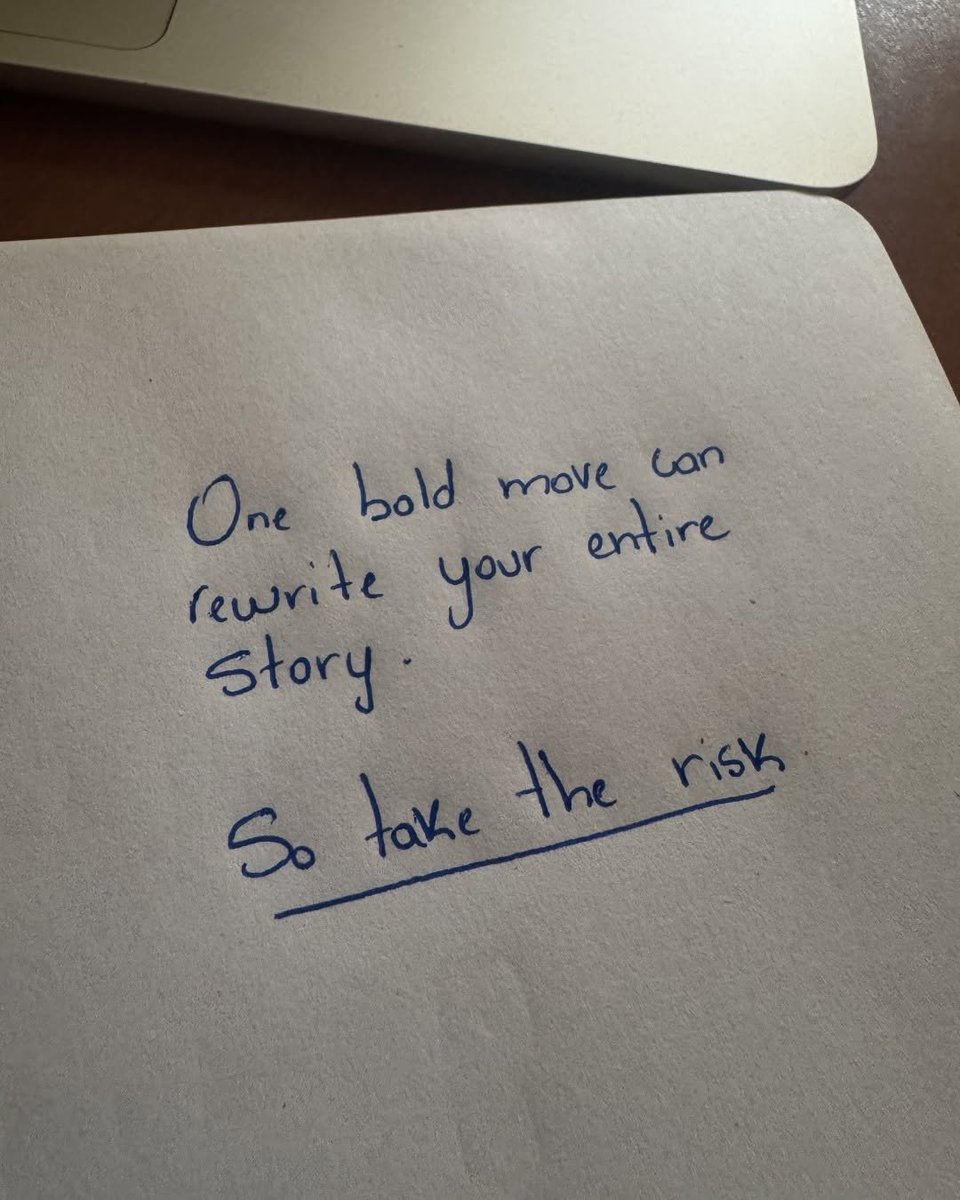 One bold move can
rewrite your entire
story.
So take the risk